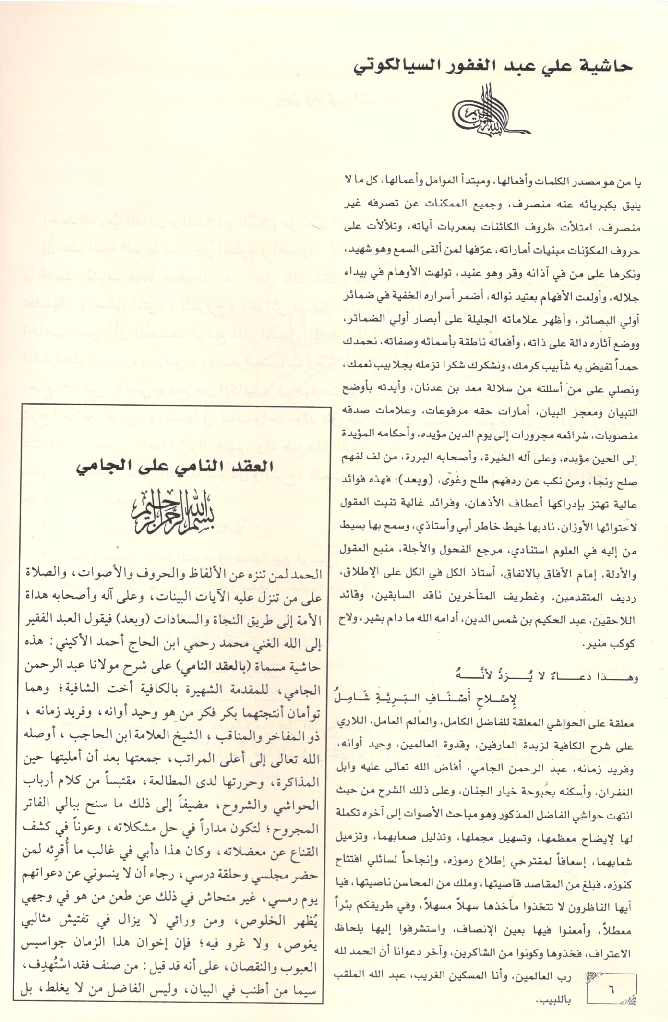 حاشية علي عبد الغفور السيالكوتي
يا من هو مصدر الكلمات وأفعالها، ومبتدأ العوامل وأعمالها، كل ما لا
يليق بكبريائه عنه منصرف، وجميع الممكنات عن تصرفه غير
منصرف، امتلأت ظروف الكائنات بمعربات آياته، وتلألأت على
حروف المكوّنات مبنيات أماراته، عرّفها لمن ألقى السمع وهو شهيد،
ونكرها على من في آذانه وقر وهو عنيد، تولهت الأوهام في بيداء
جلاله، وأولعت الأفهام بعتيد نواله، أضمر أسراره الخفية في ضمائر
أولي البصائر، وأظهر علاماته الجليلة على أبصار أولي الضمائر،
ووضع آثاره دالة على ذاته، وأفعاله ناطقة بأسمائه وصفاته، نحمدك
حمداً تفيض به شآبيب كرمك، ونشكرك شكرا تزمله بجلابيب نعمك،
ونصلي على من أسللته من سلالة معد بن عدنان، وأيدته بأوضح
التبيان ومعجز البيان، أمارات حقه مرفوعات، وعلامات صدقه
منصوبات، شرائعه مجرورات إلى يوم الدين مؤيده، وأحكامه المؤيدة
إلى الحين مؤبده، وعلى آله الخيرة، وأصحابه البررة، من لف لفهم
صلح ونجا، ومن نكب عن ردفهم طلح وغوى، (وبعد)؛ فهذه فوائد
عالية تهتز بإدراكها أعطاف الأذهان، وفرائد غالية تنبت العقول
لاحتوائها الأوزان، نادبها خيط خاطر أبي وأستاذي، وسمح بها بسيط
من إليه في العلوم استنادي، مرجع الفحول والأجلة، منبع العقول
والأدلة، إمام الآفاق بالاتفاق، أستاذ الكل في الكل على الإطلاق،
رديف المتقدمين، وغطريف المتأخرين ناقد السابقين، وقائد
اللاحقين، عبد الحكيم بن شمس الدين، أدامه الله ما دام بشير، ولاح
كوكب منير.
وهـــذا دعـــاءٌ لا يُـــرَدُّ لأنَّـــهُ
لإصْلاحِ أصْنَافِ البَرِيَّةِ شَامِلُ
معلقة على الحواشي المعلقة للفاضل الكامل، والعالم العامل، اللاري
على شرح الكافية لزبدة العارفين، وقدوة العالمين، وحيد أوانه،
وفريد زمانه، عبد الرحمن الجامي، أفاض الله تعالى عليه وابل
الغفران، وأسكنه بحبوحة خيار الجنان، وعلى ذلك الشرح من حيث
انتهت حواشي الفاضل المذكور وهو مباحث الأصوات إلى آخره تكملة
لها لإيضاح معظمها، وتسهيل مجملها، وتذليل صعابهما، وتزميل
شعابهما، إسعافاً لمقترحي إطلاع رموزه، وإنجاحاً لسائلي افتتاح
كنوزه، فبلغ من المقاصد قاصيتها، وملك من المحاسن ناصيتها، فيا
أيها الناظرون لا تتخذوا مأخذها سهلاً مسهلاً، وفي طريقكم بئراً
معطلاً، وأمعنوا فيها بعين الإنصاف، واستشرفوا إليها بلحاظ
الاعتراف، فخذوها وكونوا من الشاكرين، وآخر دعوانا أن الحمد لله
رب العالمين، وأنا المسكين الغريب، عبد الله الملقب
باللبيب.
العقد النامي على الجامي
بسم الله الرحمن الرحيم
الحمد لمن تنزه عن الألفاظ والحروف والأصوات، والصلاة
على من تنزل عليه الآيات البينات، وعلى آله وأصحابه هداة
الأمة إلى طريق النجاة والسعادات (وبعد) فيقول العبد الفقير
إلى الله الغني محمد رحمي ابن الحاج أحمد الأكيني: هذه
حاشية مسماة (بالعقد النامي) على شرح مولانا عبد الرحمن
الجامي، للمقدمة الشهيرة بالكافية أخت الشافية؛ وهما
توأمان أنتجتهما بكر فكر من هو وحيد أوانه، وفريد زمانه،
ذو المفاخر والمناقب، الشيخ العلامة ابن الحاجب، أوصله
الله تعالى إلى أعلى المراتب، جمعتها بعد أن أمليتها حين
المذاكرة، وحررتها لدى المطالعة، مقتبساً من كلام أرباب
الحواشي والشروح، مضيفاً إلى ذلك ما سنح ببالي الفاتر
المجروح؛ لتكون مداراً في حل مشكلاته، وعوناً في كشف
القناع عن معضلاته، وكان هذا دأبي في غالب ما أُقرِئه لمن
حضر مجلسي وحلقة درسي، رجاء أن لا ينسوني عن دعواتهم
يوم رمسي، غير متحاش في ذلك عن طعن من هو في وجهي
يُظهر الخلوص، ومن ورائي لا يزال في تفتيش مثالبي
يغوص، ولا غرو فيه؛ فإن إخوان هذا الزمان جواسيس
العيوب والنقصان، على أنه قد قيل: من صنف فقد اسْتُهدِف،
سيما من أطنب في البيان، وليس الفاضل من لا يغلط، بل
٦